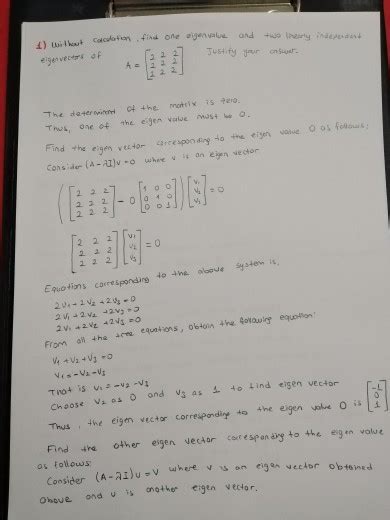 1) Without calculation, find one eigenvalue and two linearly independent
eigenvectors of A = [2 2 2
2 2 2
2 2 2] Justify your answer.
The determinant of the matrix is zero.
Thus, one of the eigen value must be 0.
Find the eigen vector corresponding to the eigen value 0 as follows;
Consider (A-λI)v=0 where v is an eigen vector
([2 2 2
2 2 2
2 2 2] - 0 [1 0 0
0 1 0
0 0 1]) [v1
v2
v3] = 0
[2 2 2
2 2 2
2 2 2] [v1
v2
v3] = 0
Equations corresponding to the above system is,
2v1+2v2+2v3=0
2v1+2v2+2v3=0
2v1+2v2+2v3=0
From all the equations, obtain the following equation:
v1+v2+v3=0
v1=-v2-v3
That is v1=-v2-v3
Choose v2 as 0 and v3 as 1 to find eigen vector
Thus, the eigen vector corresponding to the eigen value 0 is [-1
0
1]
Find the other eigen vector corresponding to the eigen value
as follows:
Consider (A-λI)u=v where v is an eigen vector obtained
above and u is another eigen vector.